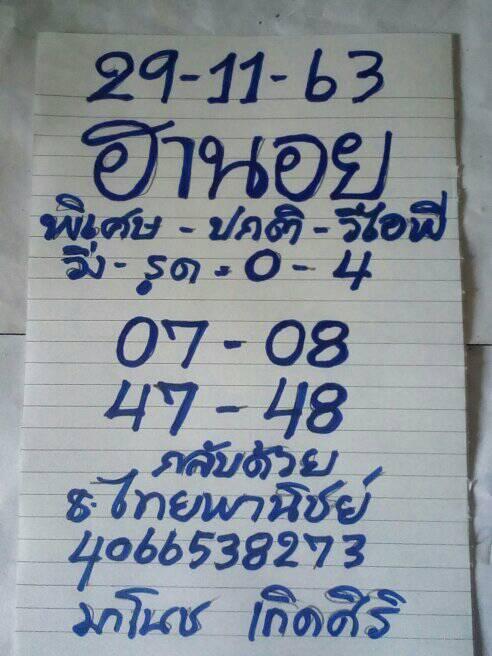 29-11-63
ฮานอย
พิเศษ - ปกติ - วีไอพี
วิ่ง - รูด = 0 - 4
07 - 08
47 - 48
กลับด้วย
ธ. ไทยพานิชย์
4066538273
มาโนช เกิดศิริ